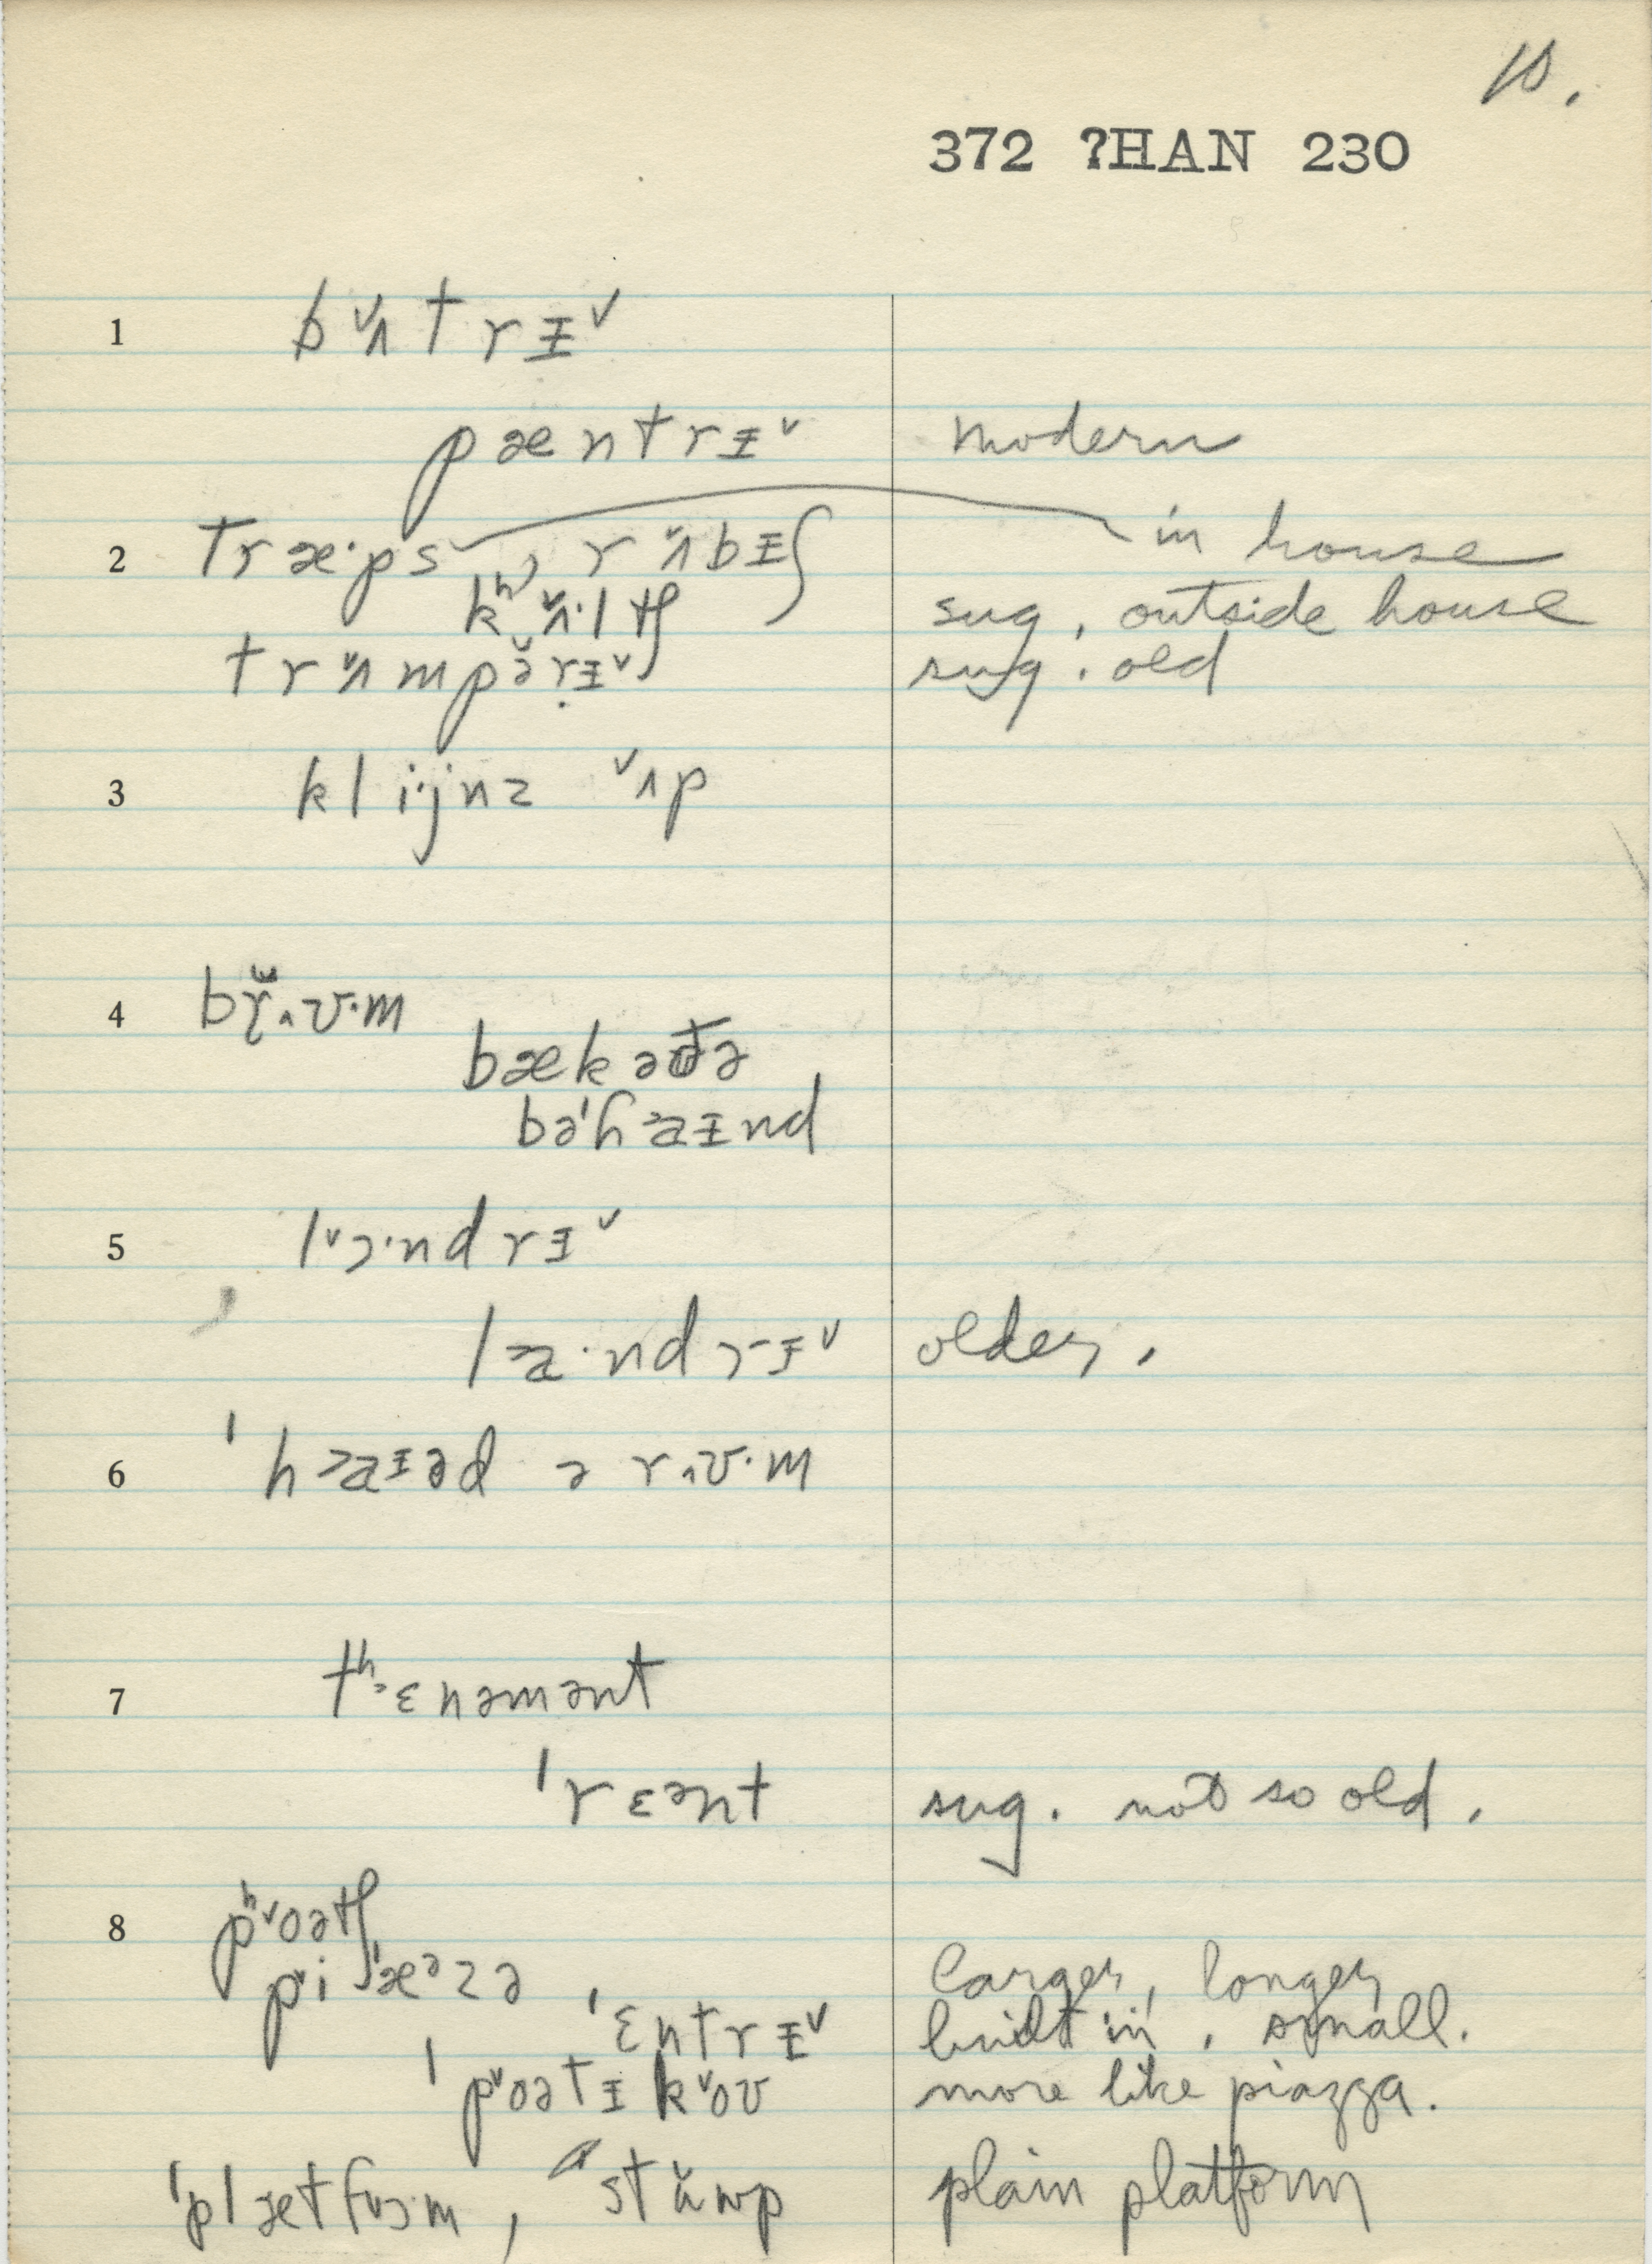 10.
372 ?HAN 230
1 b ˅ʌ t r ɪ ˅
pæntrɪ˅ modern
2 træ·ps , r ˅ʌ b ɪ ʃ in house
kʰ ˅ʌ·l tʃ sug. outside house
tr ˅ʌ mpə̆rɪ˅ sug. old
3 kli·jnz ˅ʌp
4 br̆˄ʊ·m
bækə tə
bəˈhaɪnd
5 l˅ɔ·ndrɪ˅
la·ndrɪ˅ older.
6 ˈhaɪəd ə r˄ʊ·m
7 tʰɛnəmənt
ˈrɛənt sug. not so old.
8 pʰ˅oətʃ
p˅iˈæᵊzə larger, longer
ˈɛntrɪ˅ built in, small.
ˈp˅oətɪk˅oʊ more like piazza.
ˈplætf˅ɔ·m , st plain platform